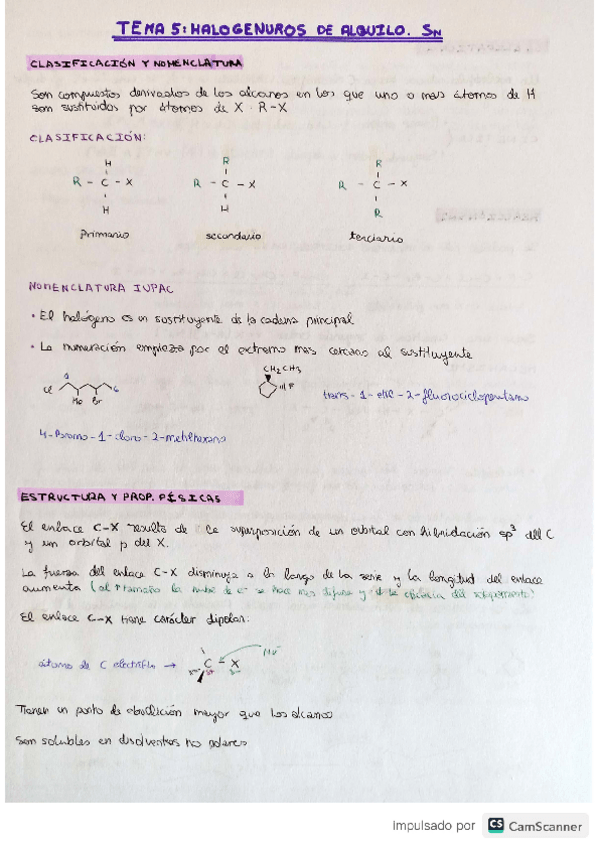 TEMA 5: HALOGENUROS DE ALQUILO. SN
CLASIFICACIÓN Y NOMENCLATURA
Son compuestos derivados de los alcanos en los que uno o más átomos de H
son sustituidos por átomos de X · R-X
CLASIFICACIÓN:
H R R
R - C - X R - C - X R - C - X
H H R
Primario secundario terciario
NOMENCLATURA IUPAC
• El halógeno es un sustituyente de la cadena principal
• La numeración empieza por el extremo más cercano al sustituyente
CH2CH3
Cl Me Br 6 F
trans-1-etil-2-fluorociclopentano
4-Bromo-1-cloro-2-metilhexano
ESTRUCTURA Y PROP. FÍSICAS
El enlace C-X resulta de la superposición de un orbital con hibridación sp3 del C
y un orbital p del X.
La fuerza del enlace C-X disminuye a lo largo de la serie y la longitud del enlace
aumenta (al ↑ tamaño la nube de e- se hace más difusa y ↓ la eficacia del solapamiento)
El enlace C-X tiene carácter dipolar:
átomo de C electrófilo → C - X Nu-
Tienen un punto de ebullición mayor que los alcanos
Son solubles en disolventes no polares
Impulsado por CS CamScanner